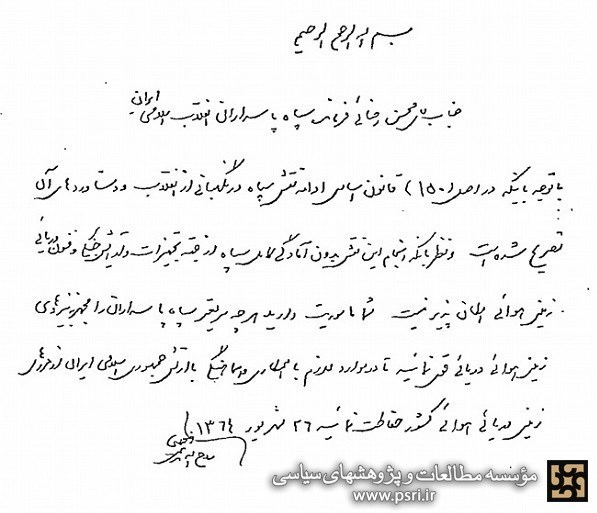 بسم الله الرحمن الرحیم
جناب آقای محسن رضائی فرمانده سپاه پاسداران انقلاب اسلامی ایران
با توجه باینکه در اصل (۱۵۰) قانون اساسی ادامه نقش سپاه در نگهبانی از انقلاب و دستاوردهای آن
تصریح شده است و نظر باینکه انجام این نقش بدون آمادگی کامل سپاه از جهت تجهیزات و تدابیر جنگی و فنون دریائی
زمینی هوائی امکان پذیر نیست شما ماموریت دارید هر چه سریعتر سپاه پاسداران را مجهز به نیروهای
زمینی هوائی دریائی قوی نمائید تا در موارد لازم با همکاری و هماهنگی با ارتش جمهوری اسلامی ایران از مرزهای
زمینی دریائی هوائی کشور حفاظت نمائید ۲۶ شهریور ۱۳۶۴
روح الله الموسوی الخمینی
مؤسسه مطالعات و پژوهشهای سیاسی
www.psri.ir